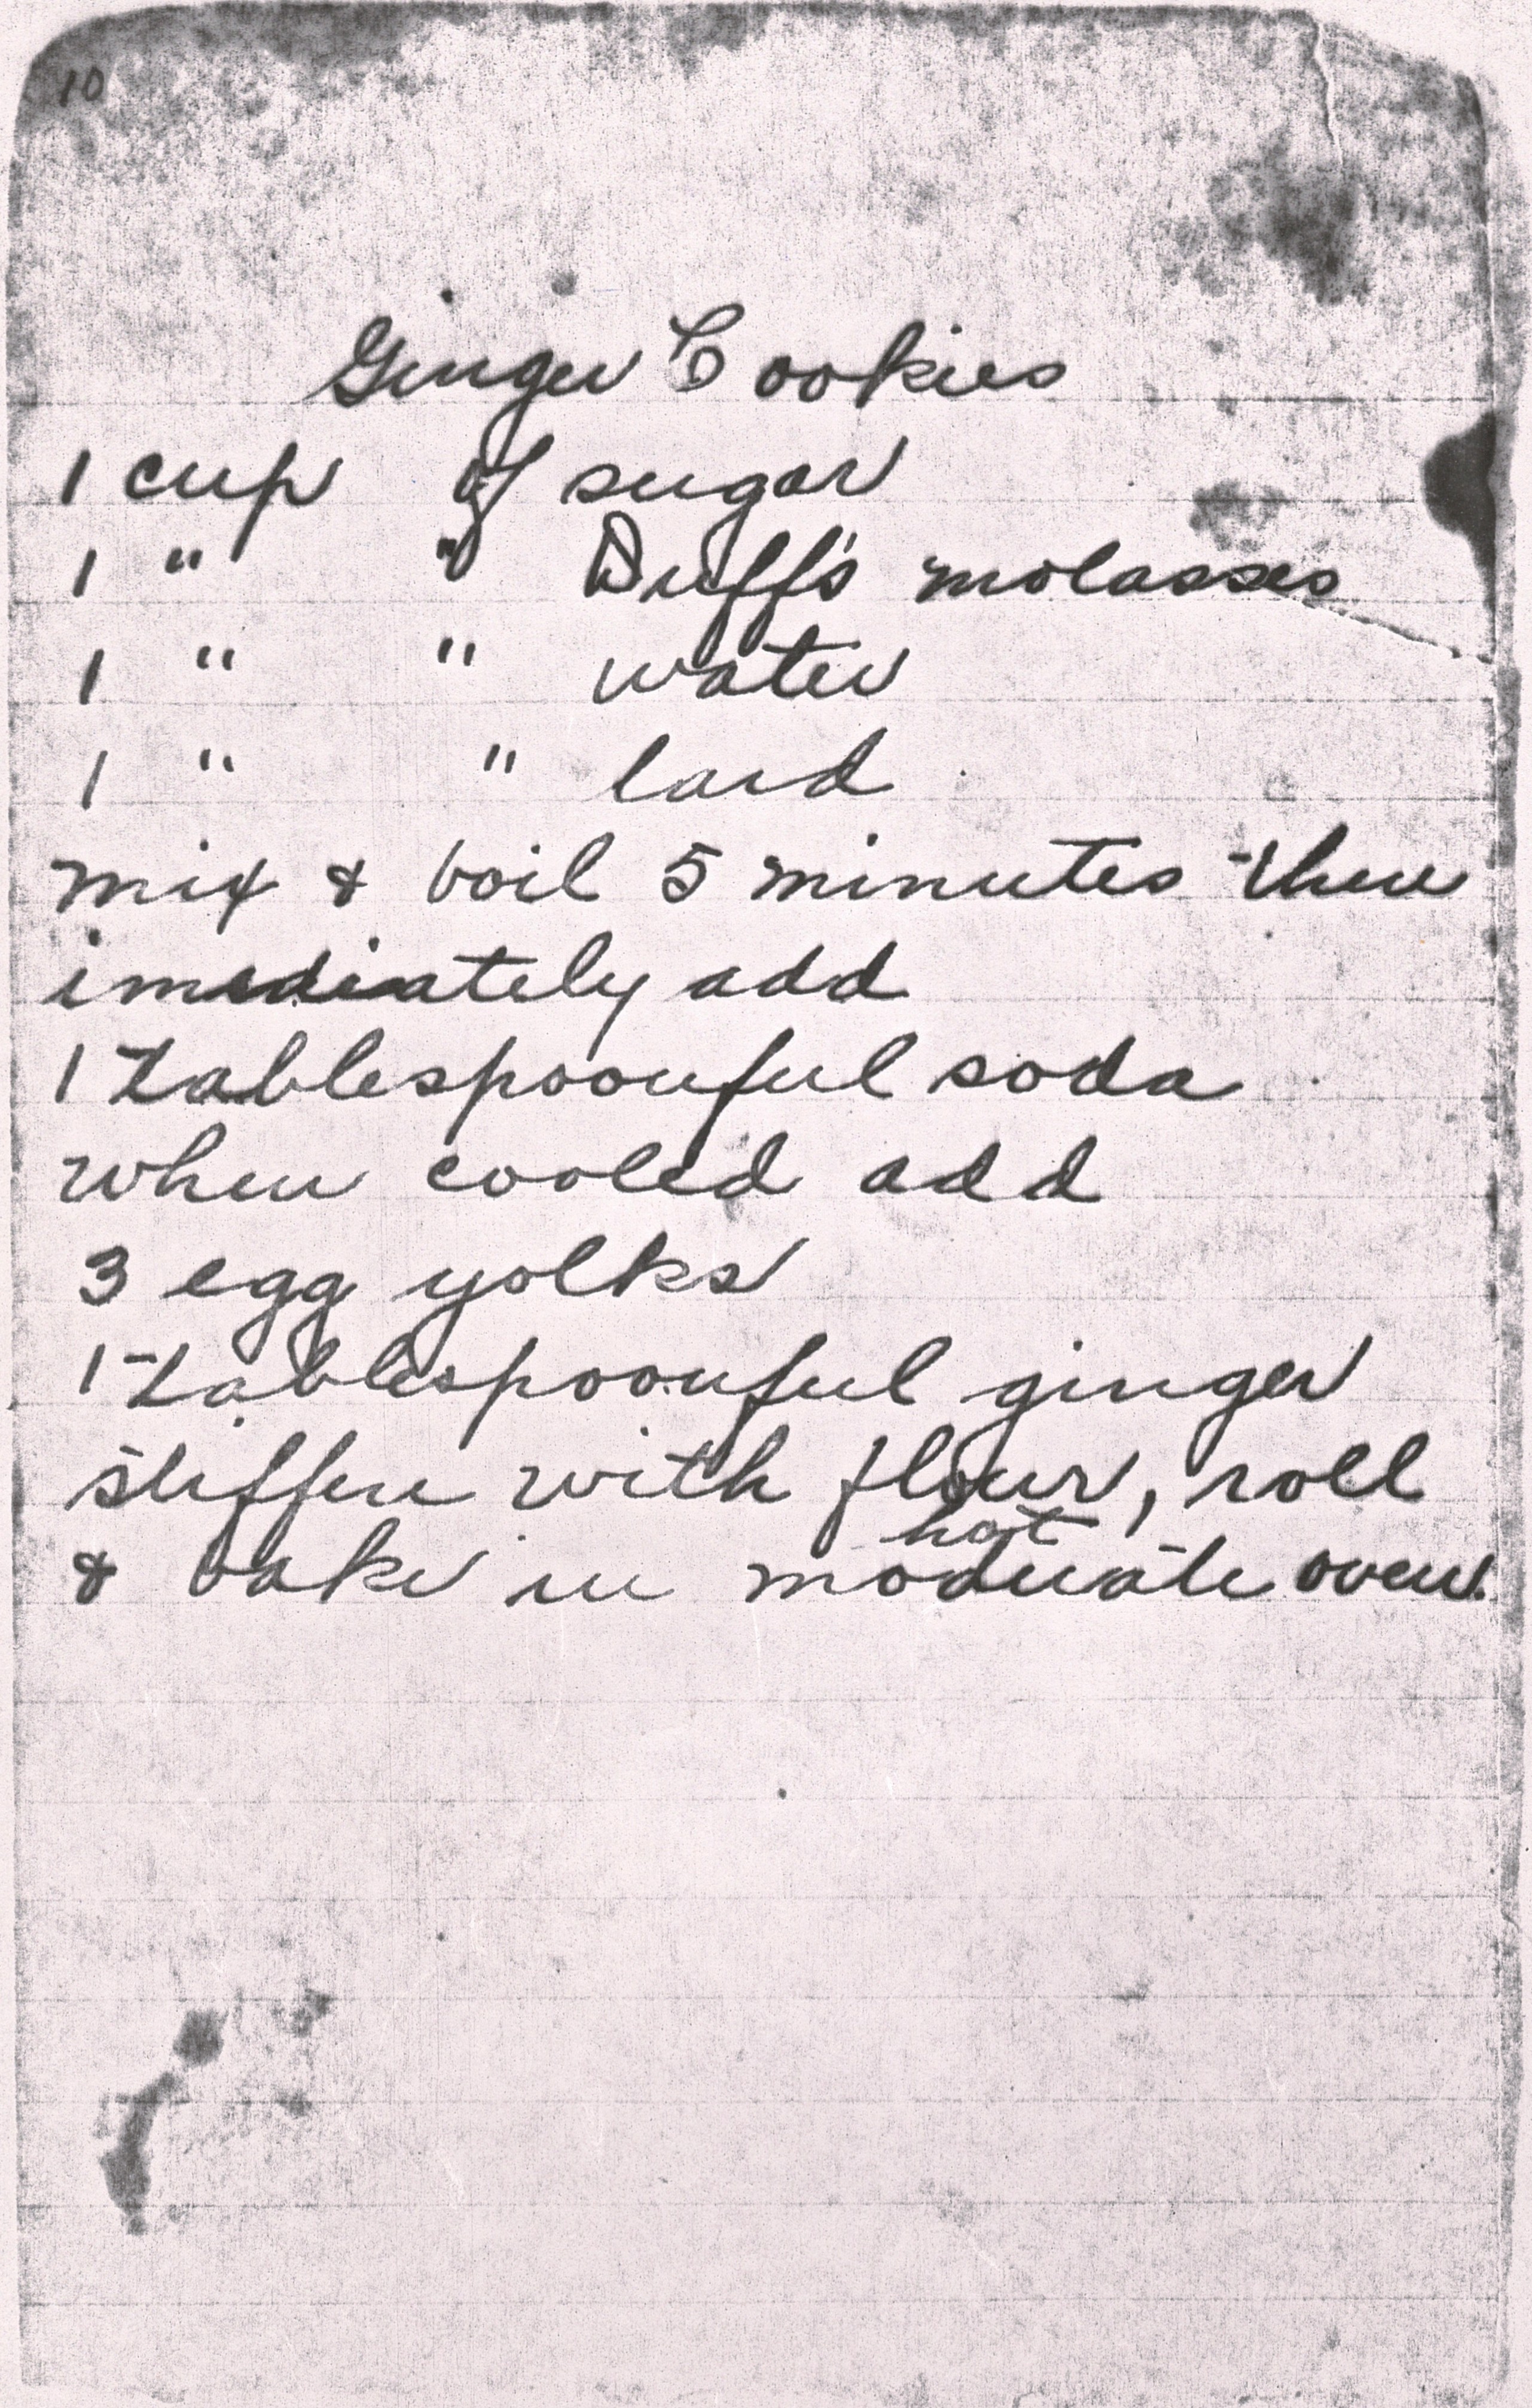 10
Ginger Cookies
1 cup of sugar
1 " " Duff's molasses
1 " " water
1 " " lard
mix & boil 5 minutes then
imediately add
1 tablespoonful soda
when cooled add
3 egg yolks
1 tablespoonful ginger
stiffen with flour, roll
hot
& bake in moderate oven.